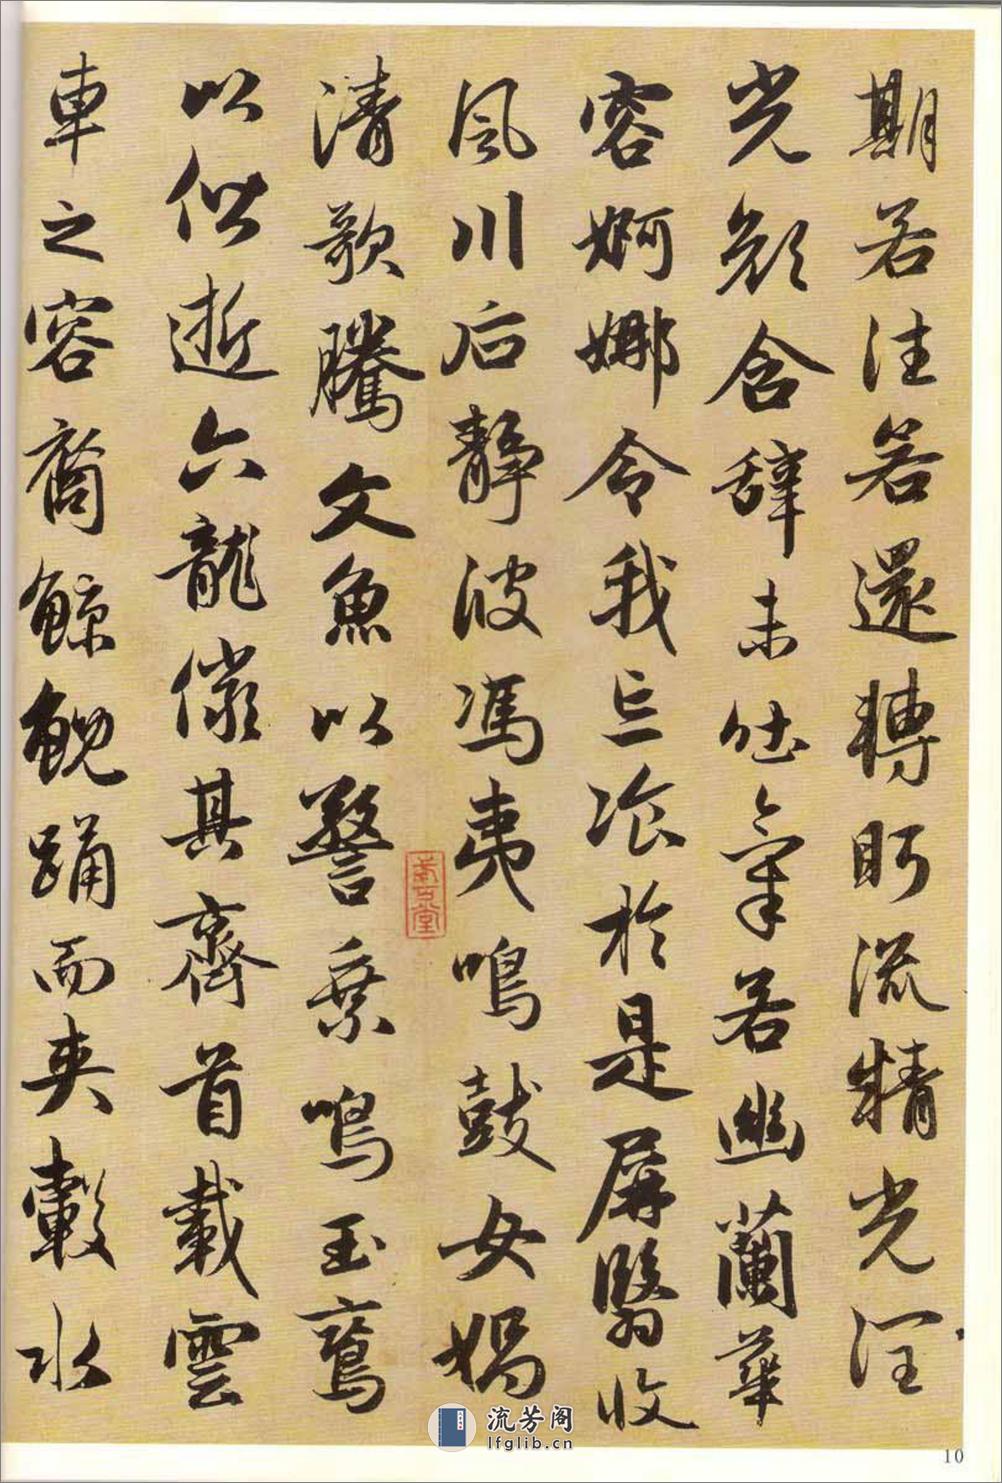 期若往若還轉眄流精光潤
光顏含辭未吐氣若幽蘭華
容婀娜令我忘飡於是屏翳收
風川后靜波馮夷鳴鼓女媧
清歌騰文魚以警乘鳴玉鸞
以偕逝六龍儼其齊首載雲
車之容裔鯨鯢踊而夾轂水
流芳阁
lfglib.cn
10